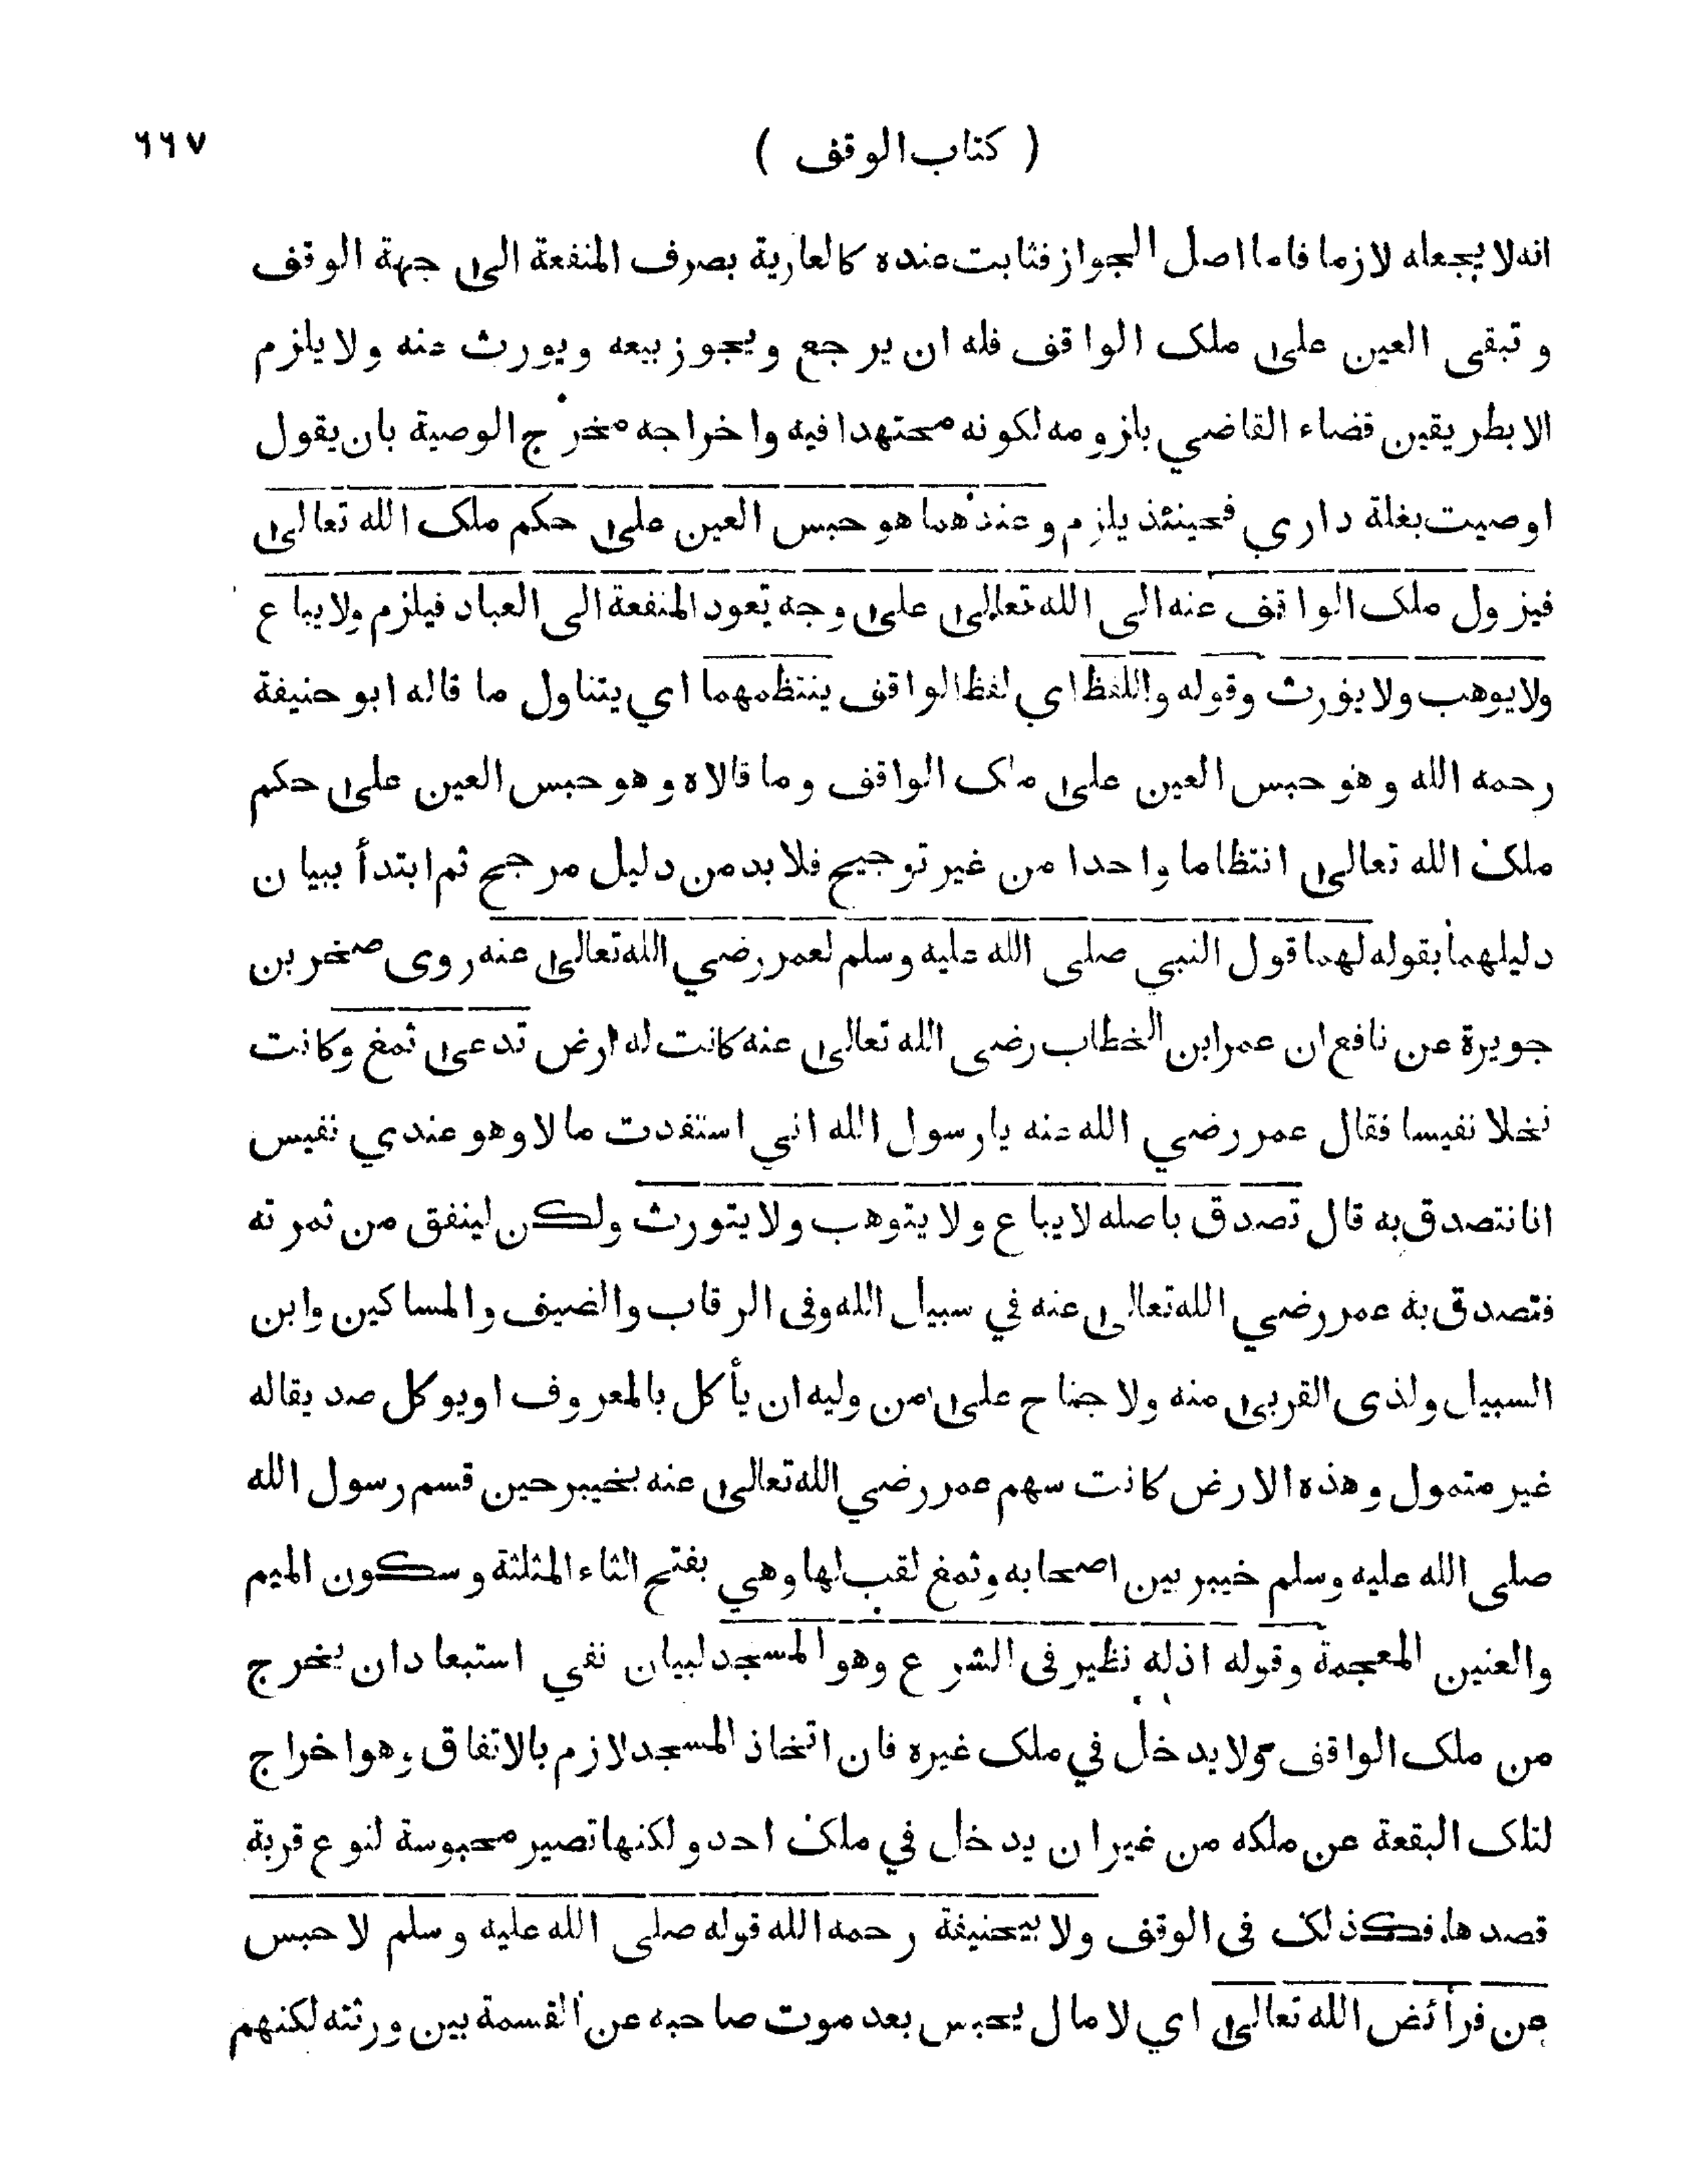 ( كتاب الوقف ) ٦٦٧
انه لا يجعله لازما فاما اصل الجواز فثابت عنده كالعارية بصرف المنفعة الى جهة الوقف
و تبقى العين على ملك الواقف فله ان يرجع ويجوز بيعه ويورث عنه ولا يلزم
الا بطريقين قضاء القاضي بلزومه لكونه مجتهدا فيه واخراجه مخرج الوصية بان يقول
اوصيت بغلة داري فحينئذ يلزم وعندهما هو حبس العين على حكم ملك الله تعالى
فيزول ملك الواقف عنه الى الله تعالى على وجه تعود المنفعة الى العباد فيلزم ولا يباع
ولا يوهب ولا يورث وقوله واللفظ اي لفظ الواقف ينتظمهما اي يتناول ما قاله ابو حنيفة
رحمه الله وهو حبس العين على ملك الواقف وما قالاه وهو حبس العين على حكم
ملك الله تعالى انتظاما واحدا من غير توجيح فلا بد من دليل مرجح ثم ابتدأ ببيان
دليلهما بقوله لهما قول النبي صلى الله عليه وسلم لعمر رضي الله تعالى عنه روى صخر بن
جويرة عن نافع ان عمر ابن الخطاب رضى الله تعالى عنه كانت له ارض تدعى ثمغ وكانت
نخلا نفيسا فقال عمر رضي الله عنه يا رسول الله اني استفدت مالا وهو عندي نفيس
انا نتصدق به قال تصدق باصله لا يباع ولا يتوهب ولا يتورث ولكن لينفق من ثمرته
فتصدق به عمر رضي الله تعالى عنه في سبيل الله وفى الرقاب والضيف والمساكين وابن
السبيل ولذى القربى منه ولا جناح على من وليه ان يأكل بالمعروف او يوكل صديقاله
غير متمول وهذه الارض كانت سهم عمر رضي الله تعالى عنه بخيبر حين قسم رسول الله
صلى الله عليه وسلم خيبر بين اصحابه وثمغ لقب لها وهي بفتح الثاء المثلثة وسكون الميم
والعنين المعجمة وقوله اذ له نظير فى الشرع وهو المسجد لبيان نفي استبعاد ان يخرج
من ملك الواقف ولا يدخل في ملك غيره فان اتخاذ المسجد لازم بالاتفاق وهو اخراج
لتلك البقعة عن ملكه من غير ان يدخل في ملك احد ولكنها تصير محبوسة لنوع قربة
قصدها فكذلك فى الوقف ولا بيحنيفة رحمه الله قوله صلى الله عليه وسلم لا حبس
عن فرائض الله تعالى اي لا مال يحبس بعد موت صاحبه عن القسمة بين ورثته لكنهم